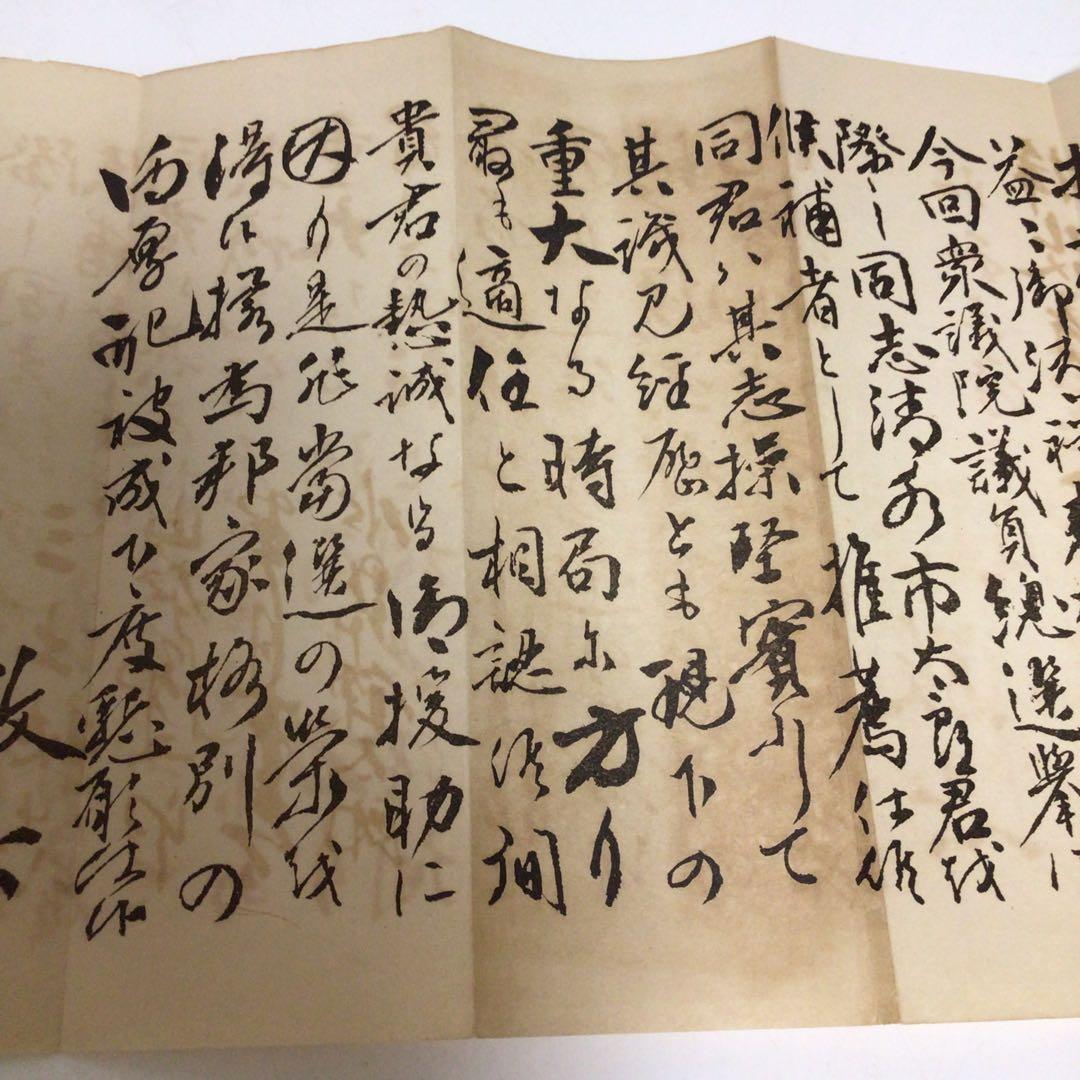 益々御清祥奉
今回衆議院議員總選挙に
際し同志清水市太郎君を
候補者として推薦仕候
同君ハ其志操堅實にして
其識見経歴とも現下の
重大なる時局に方り
最も適任と相認候間
貴君の熱誠なる御援助に
因り是非當選の栄を
得候様為邦家格別の
御厚配被成下度懇願仕候
敬